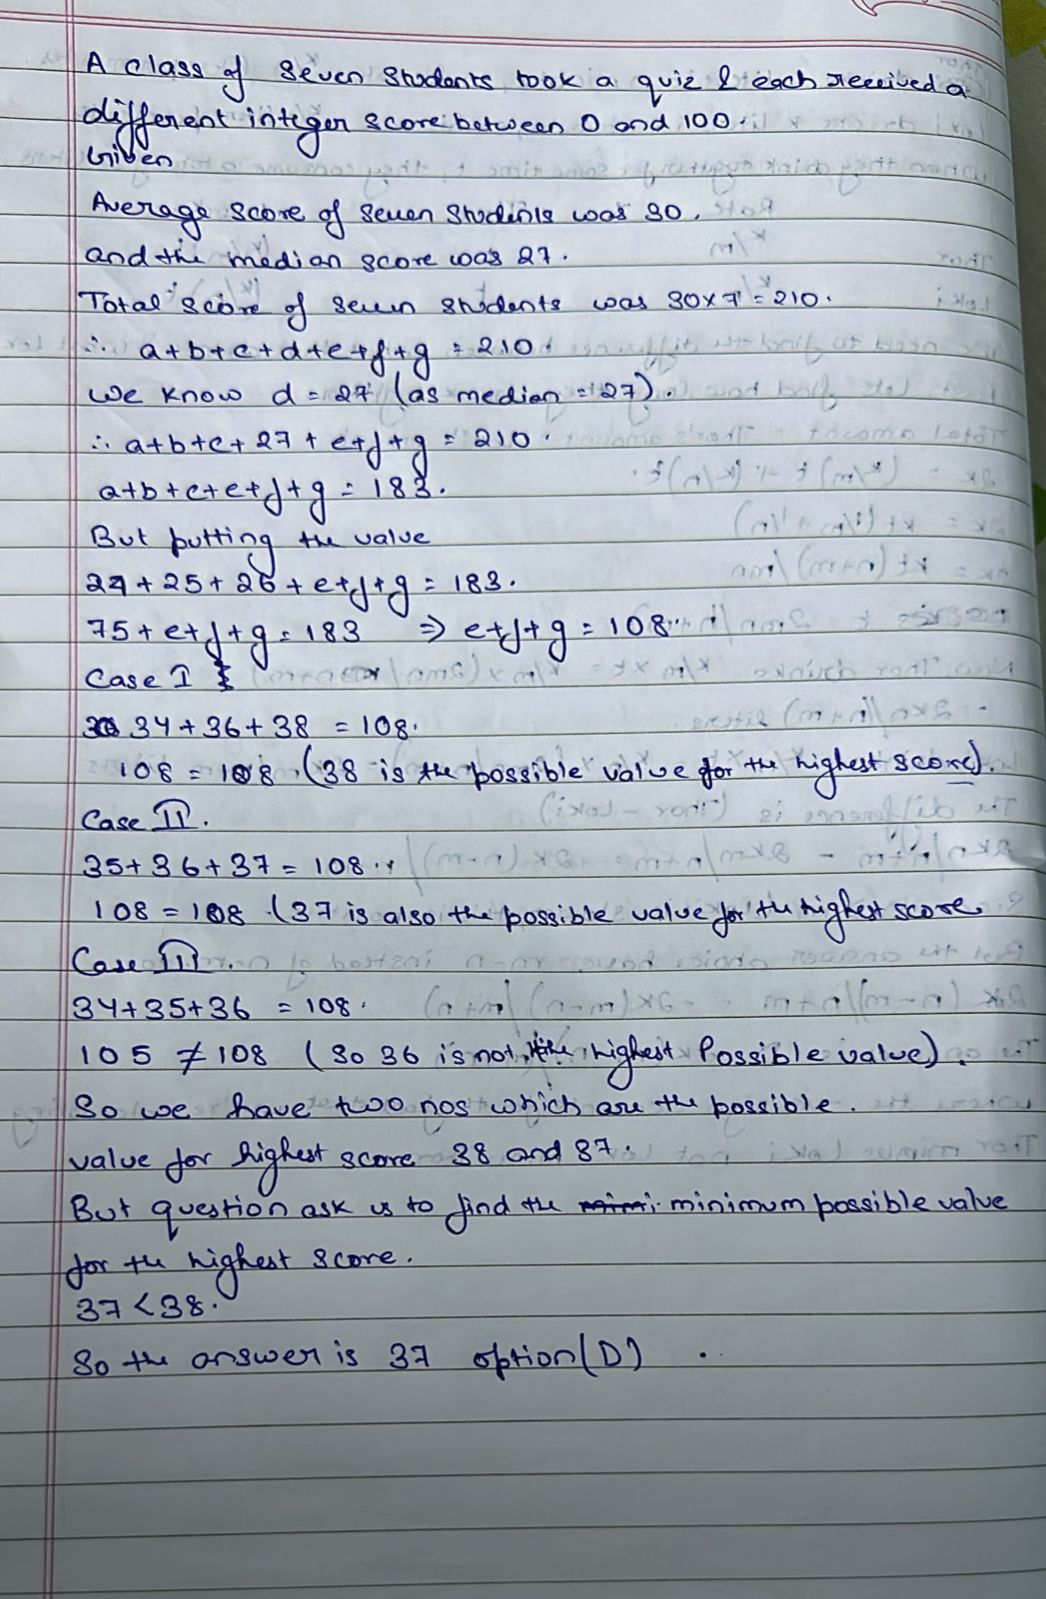 A class of seven students took a quiz & each received a
different integer score between 0 and 100.
Given
Average score of seven students was 30.
and the median score was 27.
Total score of seven students was 30×7 = 210.
∴ a+b+c+d+e+f+g = 210
We know d = 27 (as median = 27).
∴ a+b+c+27+e+f+g = 210.
a+b+c+e+f+g = 183.
But putting the value
24+25+26+e+f+g = 183.
75+e+f+g = 183 ⇒ e+f+g = 108.
Case I
34+36+38 = 108.
108 = 108 (38 is the possible value for the highest score).
Case II.
35+36+37 = 108.
108 = 108 (37 is also the possible value for the highest score
Case III.
34+35+36 = 108.
105 ≠ 108 (So 36 is not the highest Possible value).
So we have two nos which are the possible.
value for highest score 38 and 37.
But question ask us to find the minimum possible value
for the highest score.
37 < 38.
So the answer is 37 option (D)